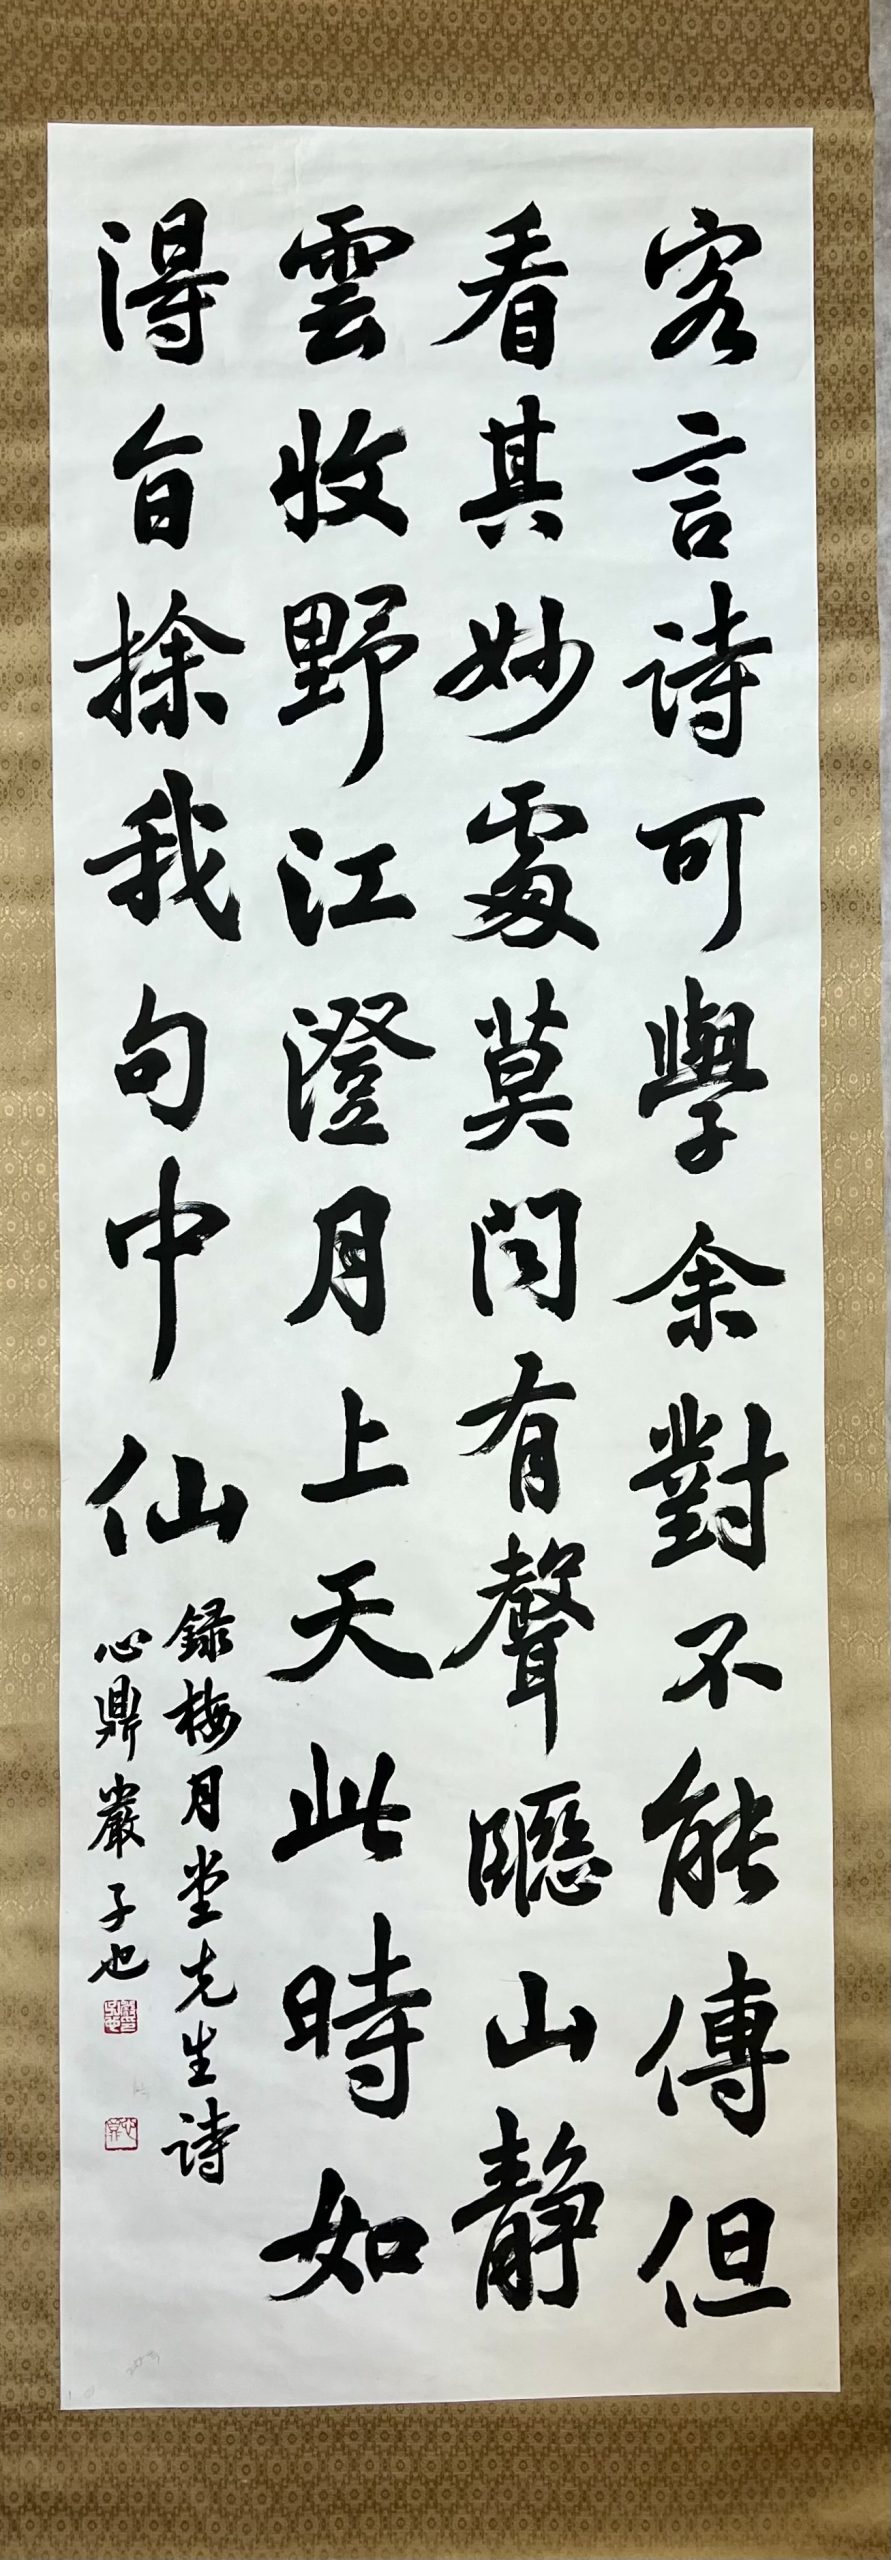 客言詩可學余對不能傳但
看其妙處莫問有聲聽山靜
雲收野江澄月上天此時如
得旨探我句中仙
錄梅月堂先生詩
心鼎嚴子也